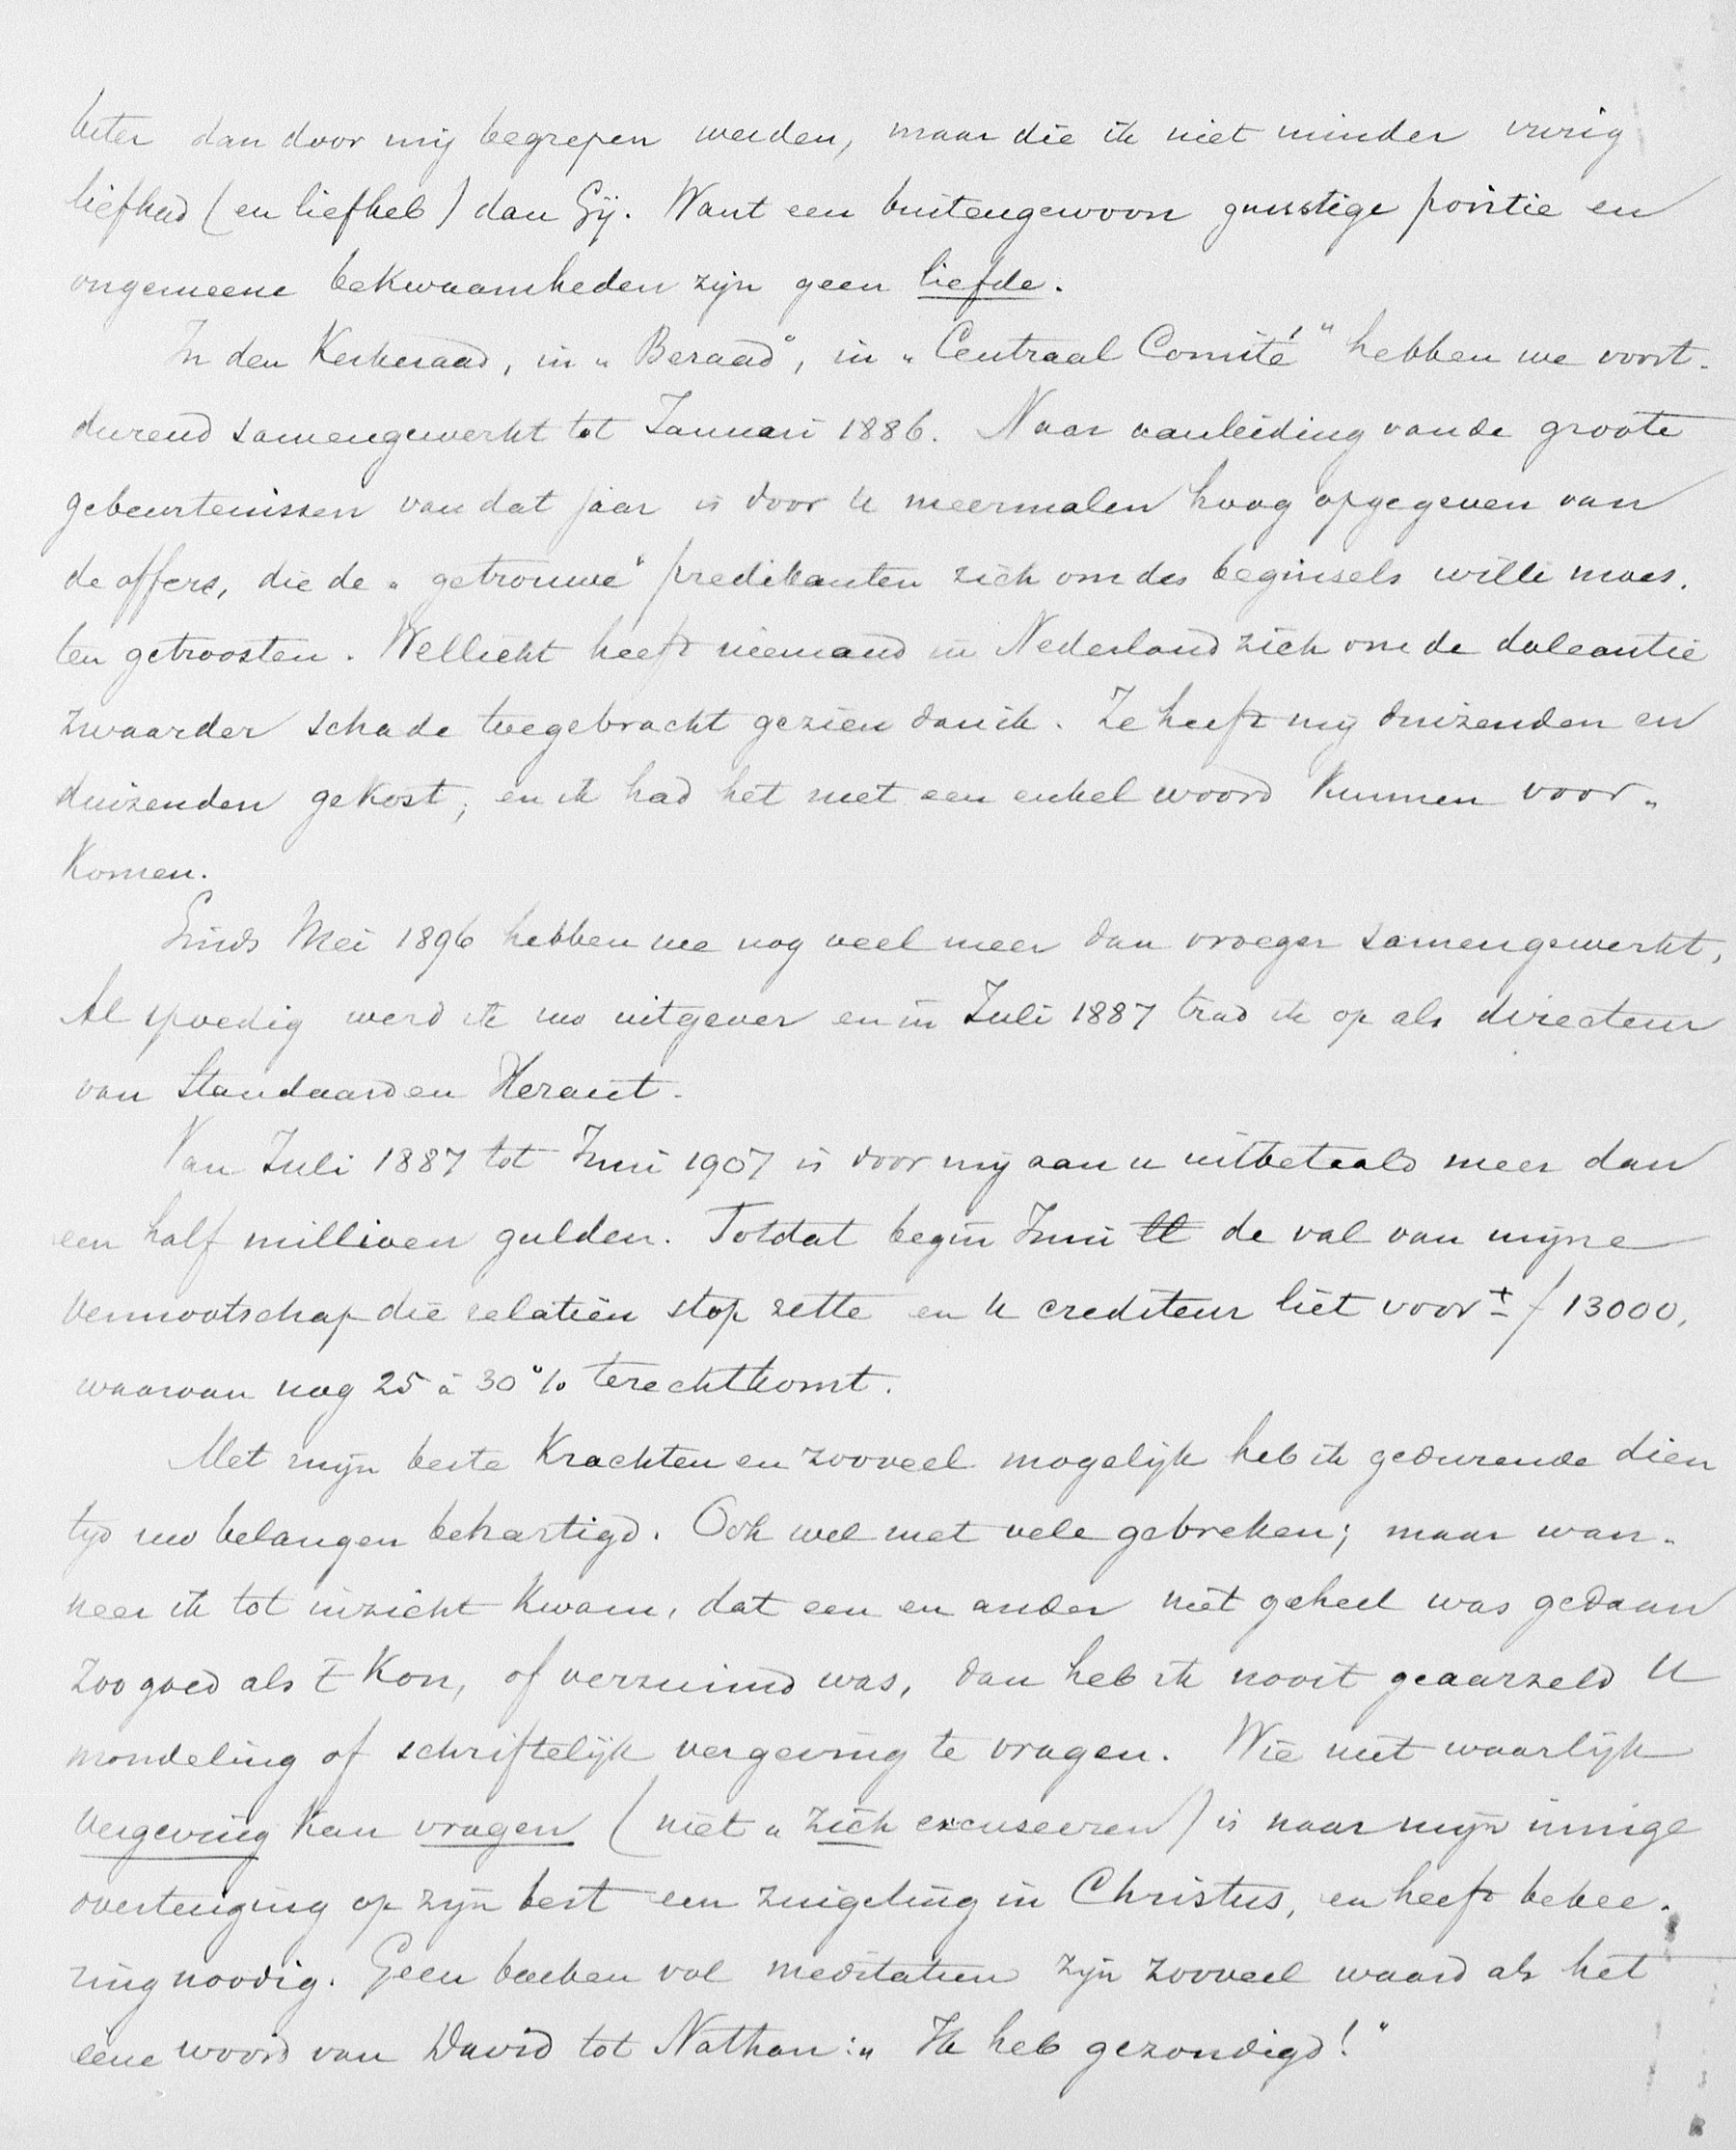 beter dan door mij begrepen werden, maar die ik niet minder vurig
liefhad (en liefheb) dan Gij. Want een buitengewoon gunstige positie en
ongemeene bekwaamheden zijn geen liefde.
In den Kerkeraad, in „Beraad", in „Centraal Comité" hebben we voort-
durend samengewerkt tot Januari 1886. Naar aanleiding van de groote
gebeurtenissen van dat jaar is door U meermalen hoog opgegeven van
de offers, die de „getrouwe" predikanten zich om des beginsels wille moes-
ten getroosten. Wellicht heeft niemand in Nederland zich om de doleantie
zwaarder schade toegebracht gezien dan ik. Ze heeft mij duizenden en
duizenden gekost; en ik had het met een enkel woord kunnen voor-
komen.
Sinds Mei 1896 hebben we nog veel meer dan vroeger samengewerkt,
Al spoedig werd ik uw uitgever en in Juli 1887 trad ik op als directeur
van Standaard en Heraut.
Van Juli 1887 tot Juni 1907 is door mij aan u uitbetaald meer dan
een half millioen gulden. Totdat begin Juni ll de val van mijne
Vennootschap die relatiën stop zette en U crediteur liet voor ± f 13000,
waarvan nog 25 à 30% terechtkomt.
Met mijn beste krachten en zooveel mogelijk heb ik gedurende dien
tijd uw belangen behartigd. Ook wel met vele gebreken; maar wan-
neer ik tot inzicht kwam, dat een en ander niet geheel was gedaan
zoo goed als 't kon, of verzuimd was, dan heb ik nooit geaarzeld U
mondeling of schriftelijk vergeving te vragen. Wie niet waarlijk
vergeving kan vragen (niet „zich excuseeren) is naar mijn innige
overtuiging op zijn best een zuigeling in Christus, en heeft bekee-
ring noodig. Geen boeken vol meditatien zijn zooveel waard als het
eene woord van David tot Nathan: „Ik heb gezondigd!"